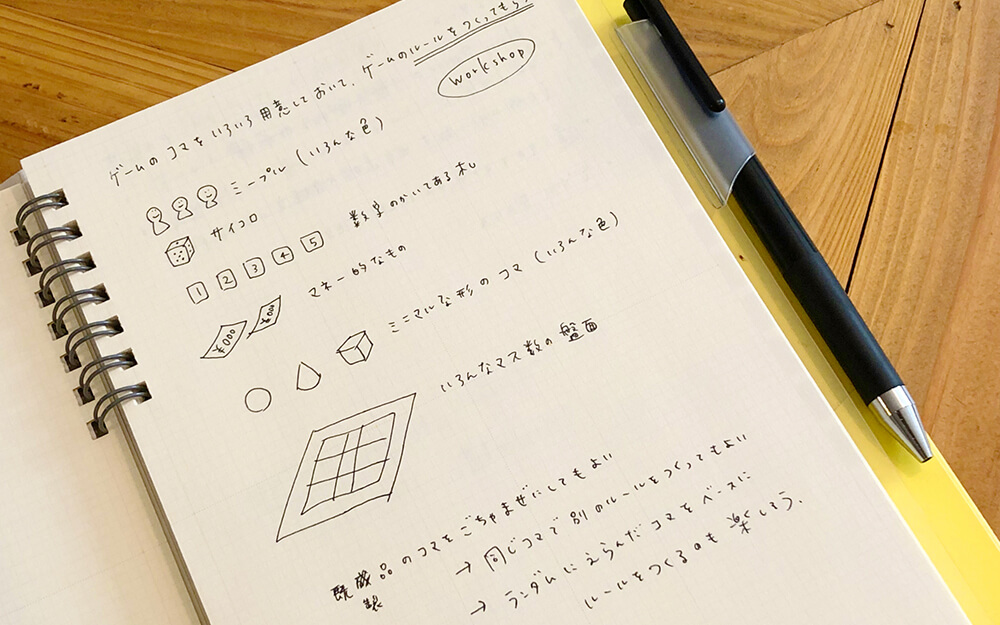 ゲームのコマをいろいろ用意しておいて、ゲームのルールをつくってもらう
workshop
ミープル (いろんな色)
サイコロ
1 2 3 4 5 数字のかいてある札
¥000 ¥000 マネー的なもの
ミニマルな形のコマ (いろんな色)
いろんなマス数の盤面
既成品のコマをごちゃまぜにしてもよい
製
→ 同じコマで別のルールをつくってもよい
→ ランダムにえらんだコマをベースに
ルールをつくるのも楽しそう.